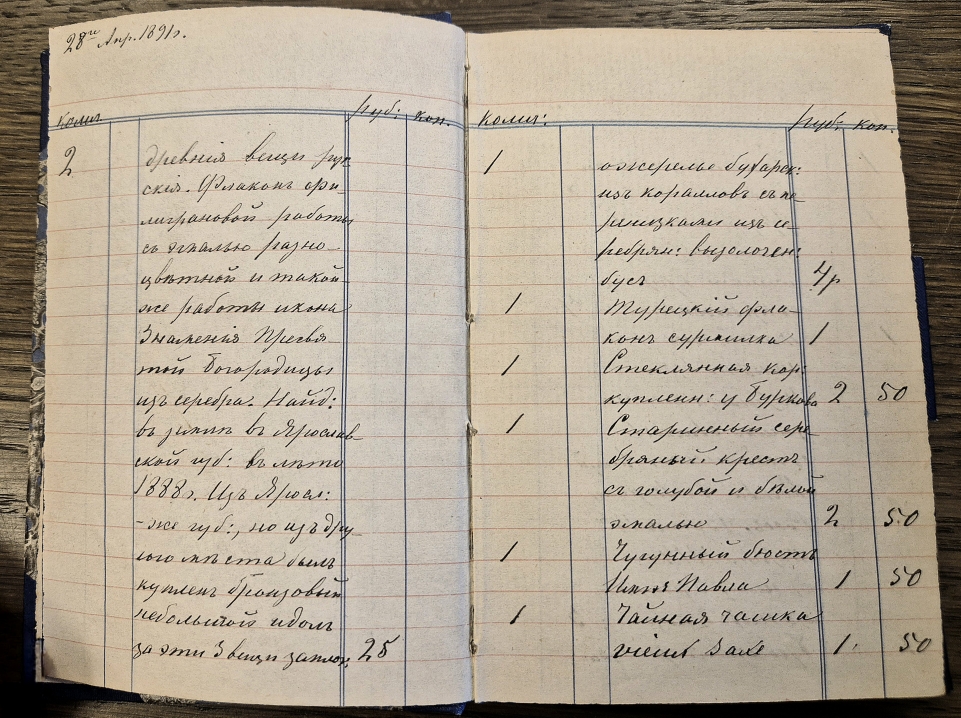 28го Апр. 1891г.
колич руб: коп.
2 древнія вещи рус
скія. Флаконъ фи-
лиграновой работы
съ эмалью разно-
цвѣтной и такой
же работы икона
Знаменія Пресвя
той Богородицы
изъ серебра. Найд:
въ землѣ въ Ярослав-
ской губ: въ лѣто
1888г. Изъ Яросл:
-же губ:, но изъ дру-
гого мѣста былъ
купленъ бронзовый
небольшой идолъ
за эти 3 вещи заплоч: 25
колич: руб: коп.
1 ожерелье бухарск:
изъ коралловъ съ
изъ се-
ребрян: вызолочен:
бусъ 4р
1 Турецкій фла-
конъ сурмилка 1
1 Стеклянная кор:
купленн: у Буркова 2 50
1 Старинный сере-
бряный крестъ
съ голубой и бѣлой
эмалью 2 50
1 Чугунный бюстъ
Павла 1 50
1 Чайная чашка
vieux Saxe 1 50